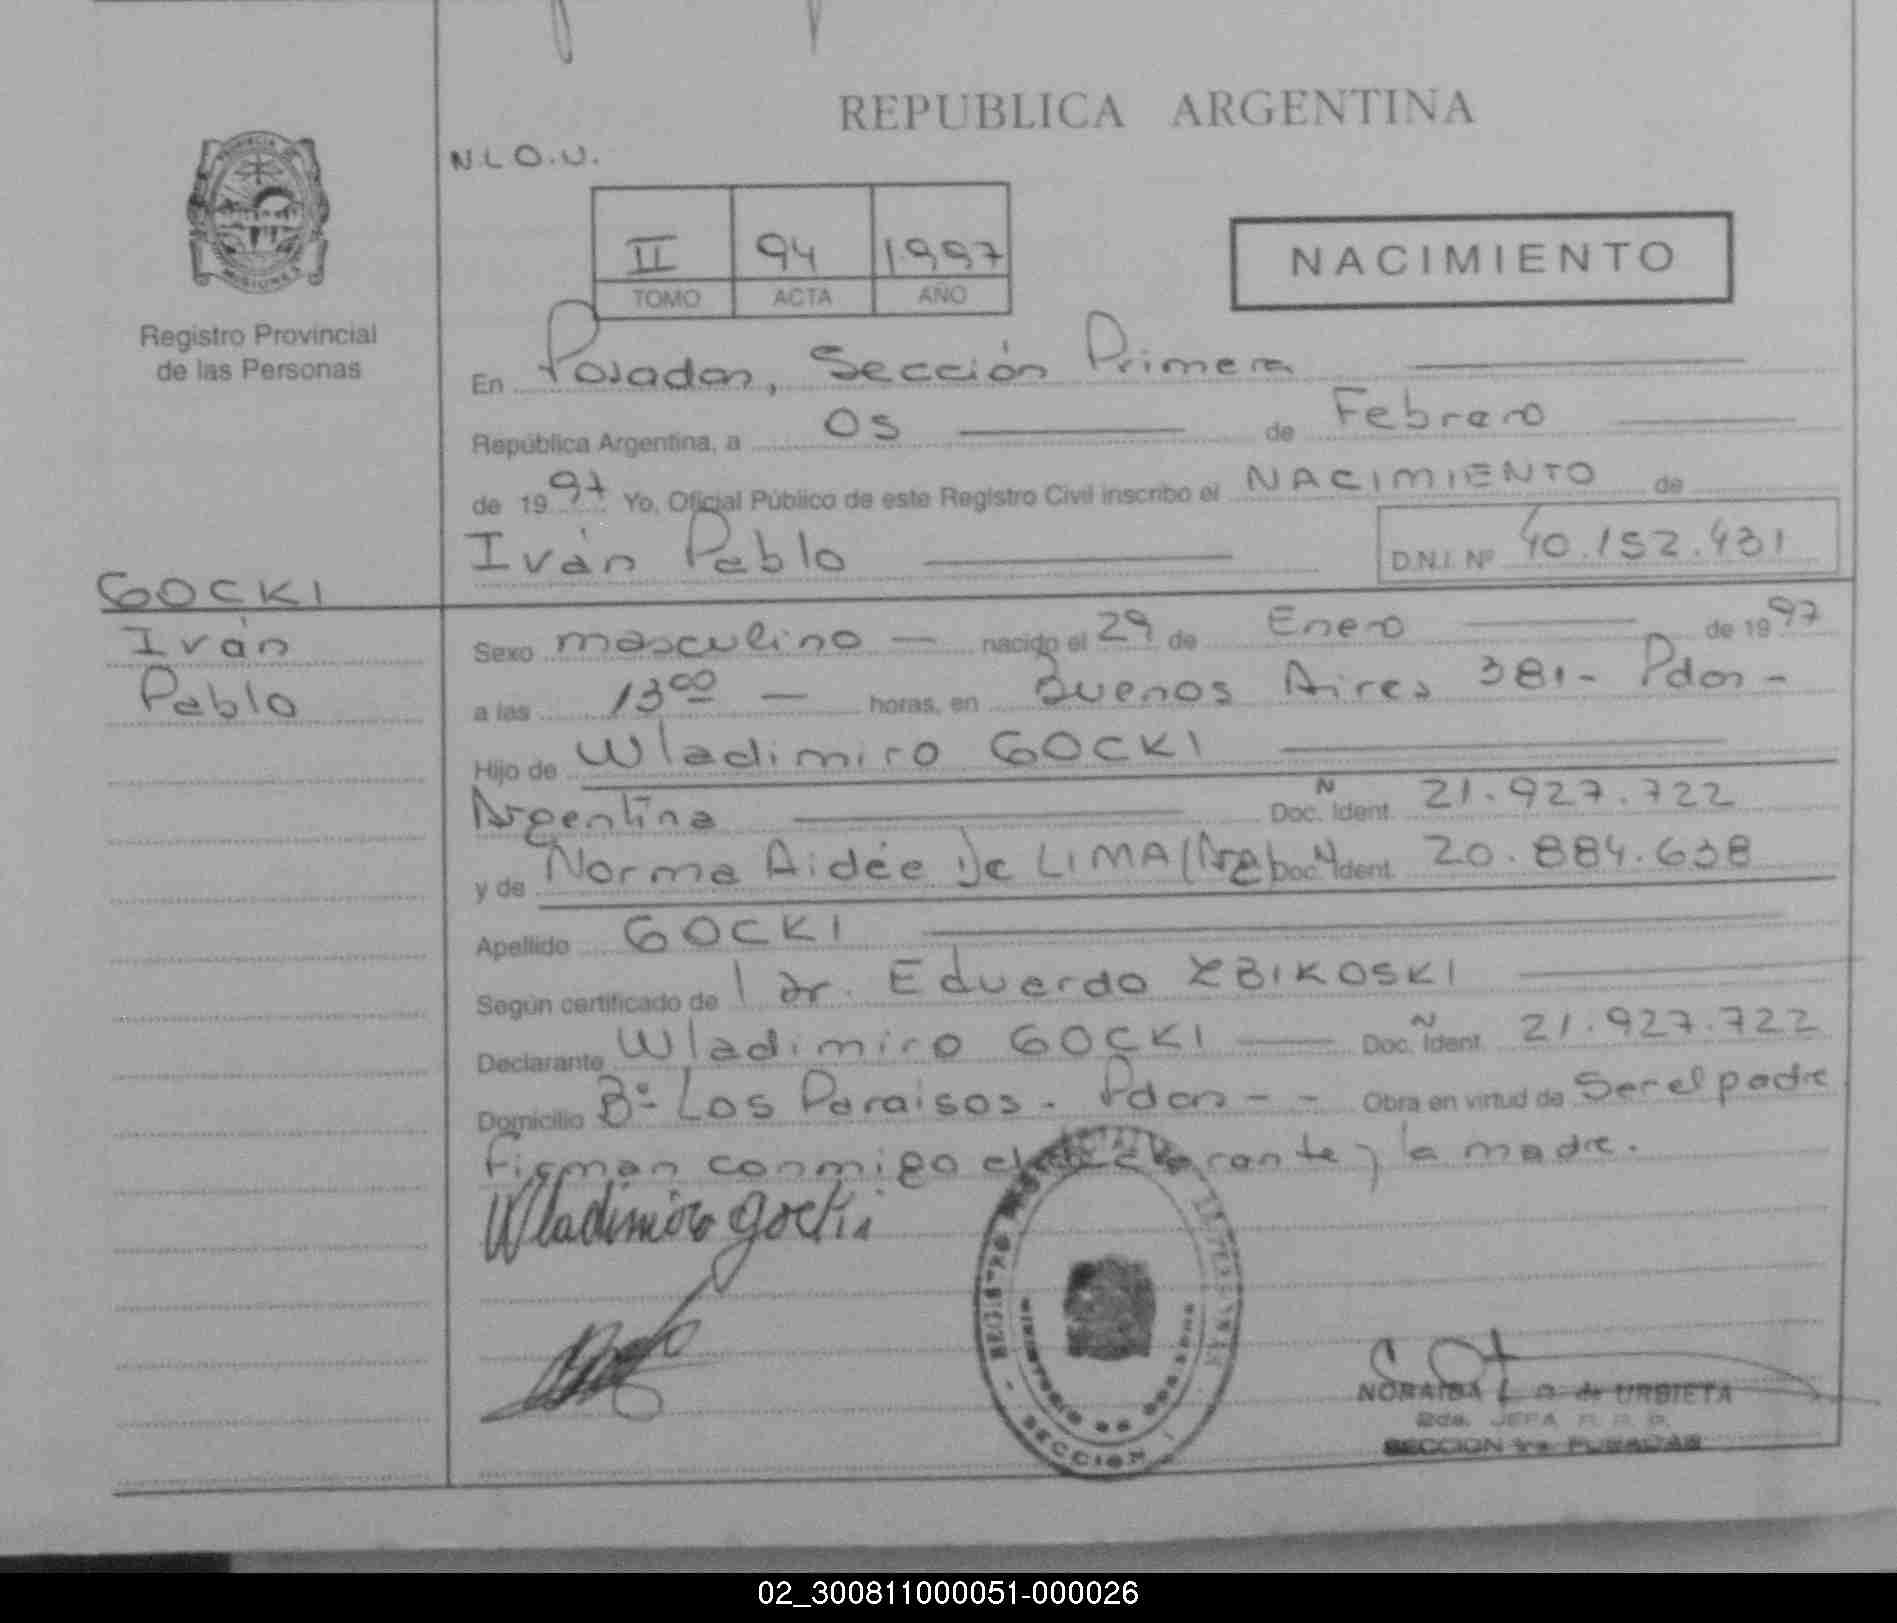 REPUBLICA ARGENTINA
N.L.O.U.
II 94 1997
TOMO ACTA AÑO
NACIMIENTO
Registro Provincial
de las Personas
En Posadas, Sección Primera
República Argentina, a 05 de Febrero
de 1997 Yo, Oficial Público de este Registro Civil inscribo el NACIMIENTO de
Iván Pablo D.N.I. Nº 40.152.431
GOCKI
Iván
Pablo
Sexo masculino nacido el 29 de Enero de 1997
a las 13 00 horas, en Buenos Aires 381- Pdas -
Hijo de Wladimiro GOCKI
Argentina Doc. N Ident. 21.927.722
y de Norma Aidée De LIMA (Arg) Doc. N Ident. 20.884.638
Apellido GOCKI
Según certificado de Dr. Eduardo ZBIKOSKI
Declarante Wladimiro GOCKI Doc. N Ident. 21.927.722
Domicilio Bº Los Paraisos. Pdas - - Obra en virtud de Ser el padre
Firman conmigo el declarante y la madre.
Wladimiro Gocki
SECCION
de URBIETA
2da. JEFA
SECCION 1ra. POSADAS
02_300811000051-000026